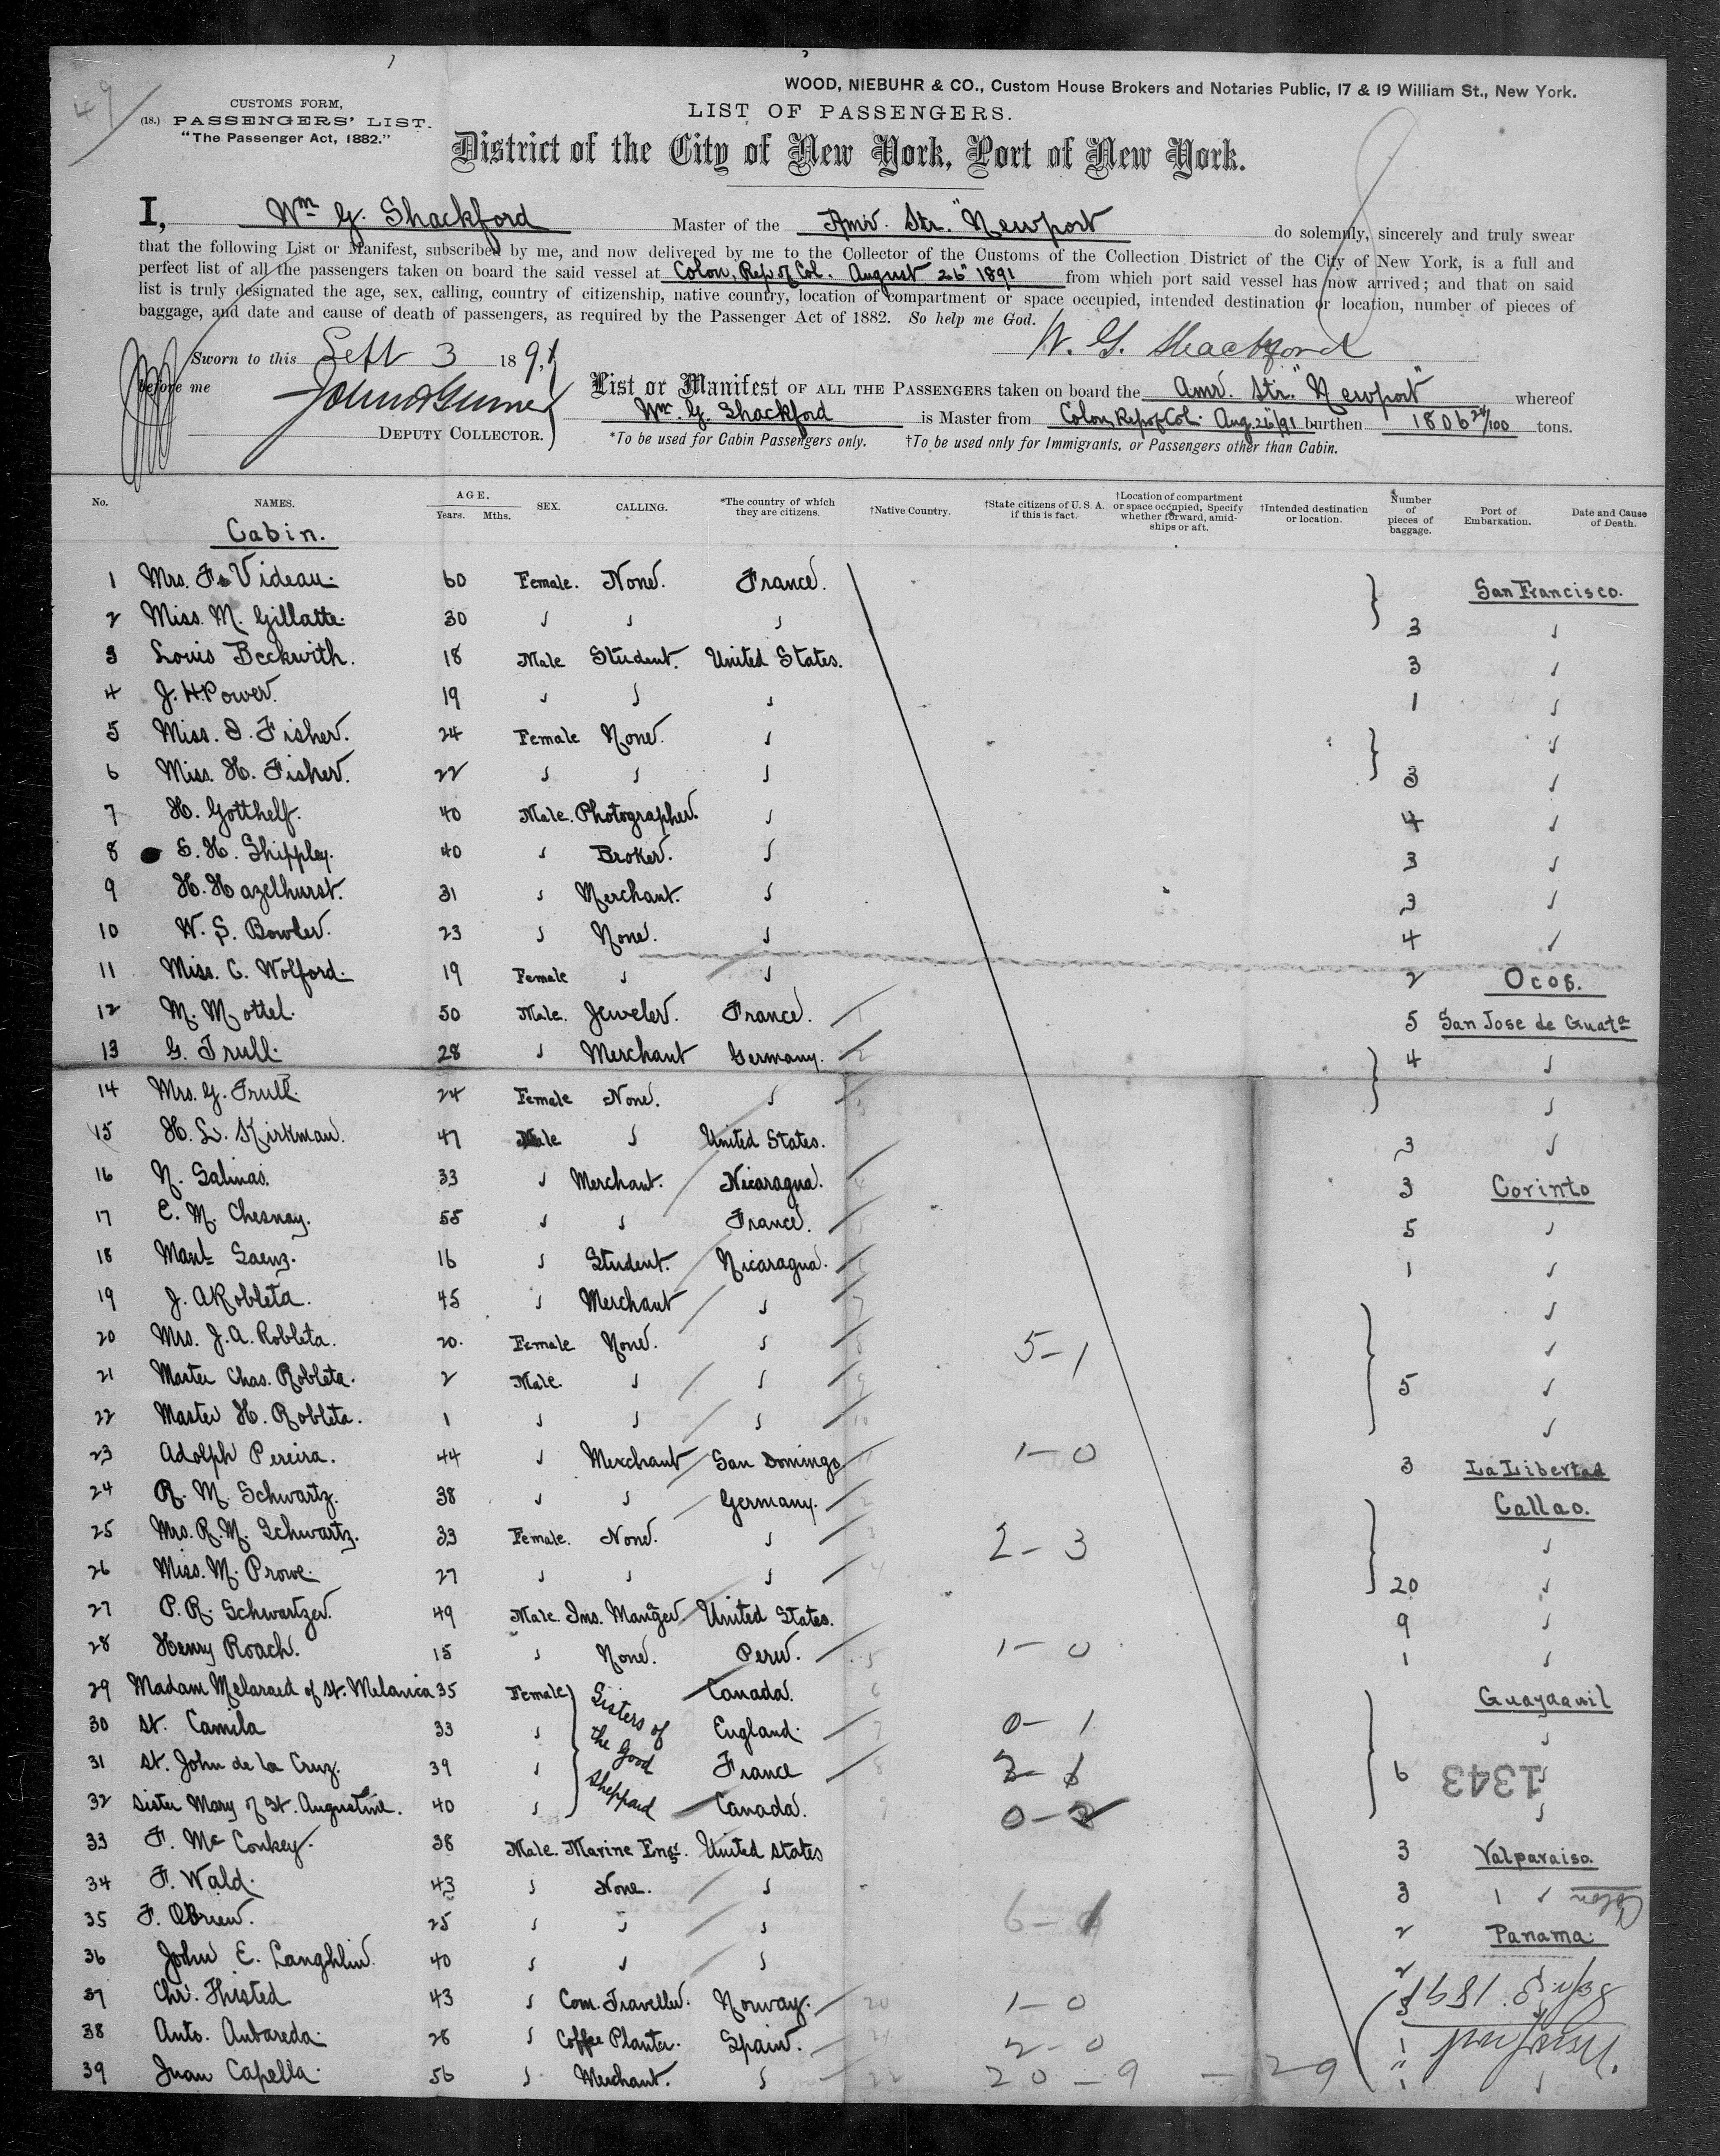 49
WOOD, NIEBUHR & CO., Custom House Brokers and Notaries Public, 17 & 19 William St., New York.
CUSTOMS FORM,
(18.) PASSENGERS' LIST.
"The Passenger Act, 1882."
LIST OF PASSENGERS.
District of the City of New York, Port of New York.
I, Wm G. Shackford Master of the Amr. Str. "Newport do solemnly, sincerely and truly swear
that the following List or Manifest, subscribed by me, and now delivered by me to the Collector of the Customs of the Collection District of the City of New York, is a full and
perfect list of all the passengers taken on board the said vessel at Colon, Rep of Col. August 26" 1891 from which port said vessel has now arrived; and that on said
list is truly designated the age, sex, calling, country of citizenship, native country, location of compartment or space occupied, intended destination or location, number of pieces of
baggage, and date and cause of death of passengers, as required by the Passenger Act of 1882. So help me God.
W. G. Shackford
Sworn to this Sept 3 1891
before me
DEPUTY COLLECTOR.
List or Manifest OF ALL THE PASSENGERS taken on board the Amr. Str. "Newport" whereof
Wm. G. Shackford is Master from Colon, Rep of Col. Aug. 26"/91 burthen 1806 24/100 tons.
*To be used for Cabin Passengers only. †To be used only for Immigrants, or Passengers other than Cabin.
No. NAMES. AGE. Years. Mths. SEX. CALLING. *The country of which they are citizens. †Native Country. †State citizens of U. S. A. if this is fact. †Location of compartment or space occupied, Specify whether forward, amidships or aft. †Intended destination or location. Number of pieces of baggage. Port of Embarkation. Date and Cause of Death.
Cabin.
1 Mrs. F. Videau. 60 Female. None. France. San Francisco.
2 Miss. M. Gillatte. 30 " " " 3 "
3 Louis Beckwith. 18 Male Student. United States. 3 "
4 J. H. Power. 19 " " " 1 "
5 Miss. I. Fisher. 24 Female None. " "
6 Miss. H. Fisher. 22 " " " 3 "
7 H. Gotthelf. 40 Male. Photographer. " 4 "
8 S. H. Shippley. 40 " Broker. " 3 "
9 H. Hazelhurst. 31 " Merchant. " 3 "
10 W. S. Bowler. 23 " None. " 4 "
11 Miss. C. Wolford. 19 Female " " 2 Ocos.
12 M. Mottel. 50 Male. Jeweler. France. 1 5 San Jose de Guata
13 G. Trull. 28 " Merchant Germany. 2 4 "
14 Mrs. G. Trull. 24 Female None. " 3 "
15 H. L. Kirkman. 47 Male " United States. 3 "
16 N. Salinas. 33 " Merchant. Nicaragua. 4 3 Corinto
17 E. M. Chesnay. 55 " " France. 5 5 "
18 Manl Saenz. 16 " Student. Nicaragua. 6 1 "
19 J. A Robleta. 45 " Merchant " 7 "
20 Mrs. J. A. Robleta. 20. Female None. " 8 5-1 "
21 Master Chas. Robleta. 2 Male. " " 9 5 "
22 Master H. Robleta. 1 " " " 10 "
23 Adolph Pereira. 44 " Merchant San Domingo. 1 1-0 3 La Libertad
24 R. M. Schwartz. 38 " " Germany. 2 Callao.
25 Mrs. R. M. Schwartz. 33 Female. None. " 3 2-3 "
26 Miss. M. Prowe. 27 " " " 4 20 "
27 P. R. Schwartzer. 49 Male. Ins. Manger. United States. 9 "
28 Henry Roach. 15 " None. Peru. 5 1-0 1 "
29 Madam of St. Melanica 35 Female Sisters of Canada. 6 Guayaquil
30 St. Camila 33 " the Good England. 7 0-1 "
31 St. John de la Cruz. 39 " Sheppard France 8 6 "
32 Sister Mary of St. Augustine. 40 " Canada. 9 0-2 "
1343
33 F. Mc Conkey. 38 Male. Marine Engr. United States 3 Valparaiso.
34 F. Wald. 43 " None. " 3 "
Colon
35 F. OBrien. 25 " " " 6-1 2 Panama.
36 John E. Langhlin. 40 " " " 2 "
37 Chr. Thisted 43 " Com. Traveller. Norway. 20 1-0 3
38 Anto. Aubareda. 28 " Coffee Planter. Spain. 21 2-0 1
39 Juan Capella. 56 " Merchant. " 22 20-9 - 29 1 "
Newport
Sept 3" 1891